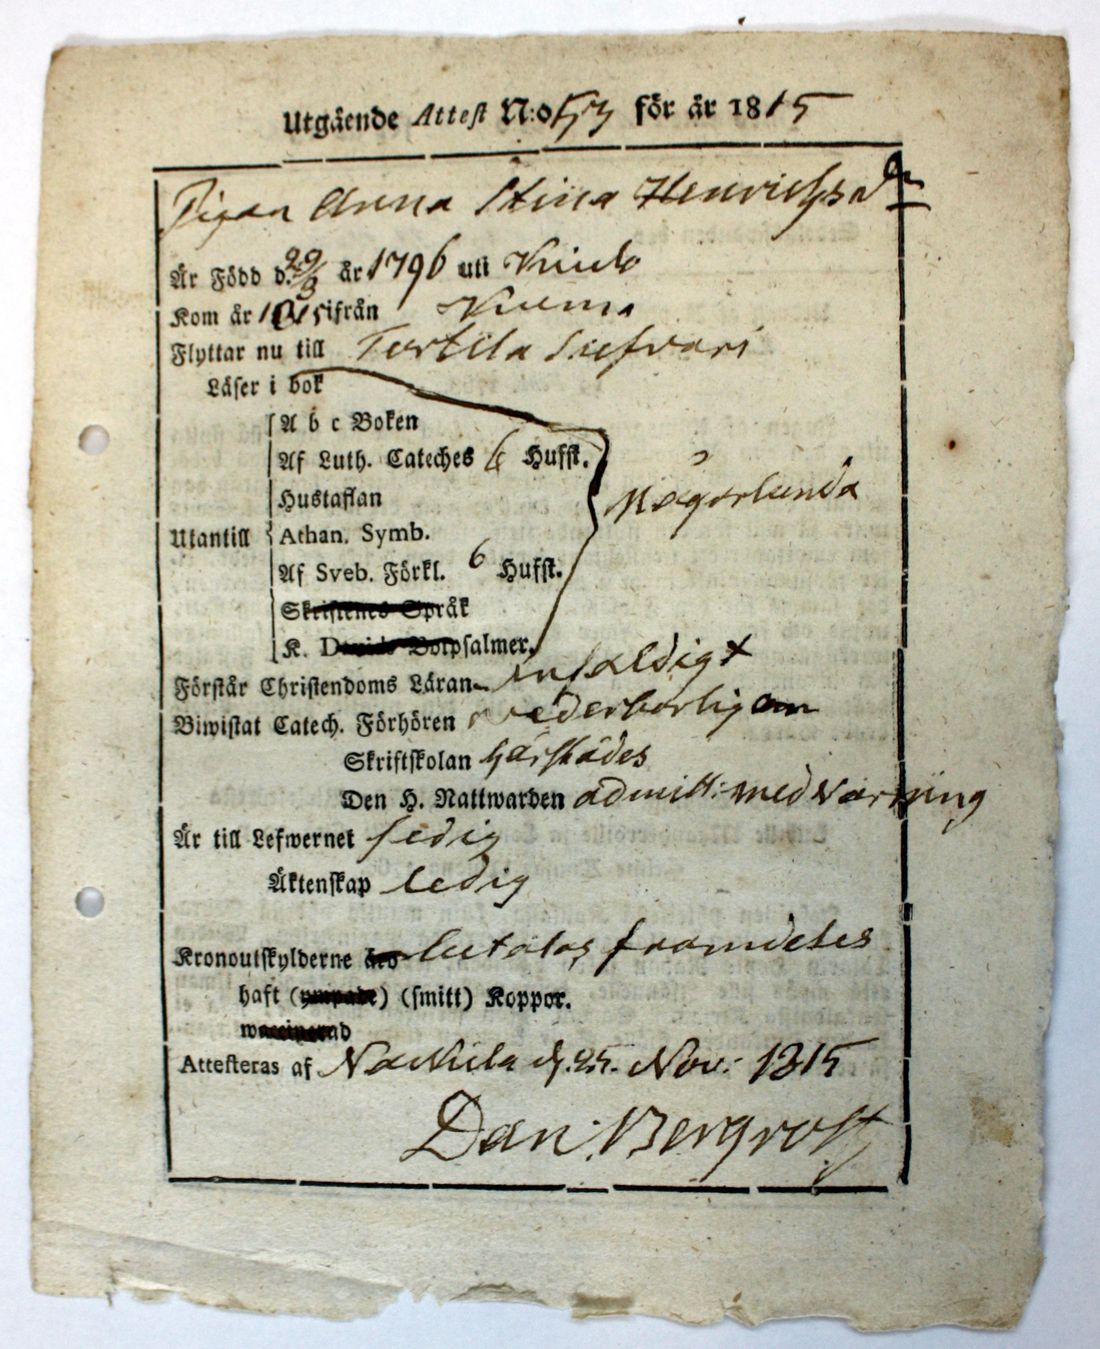 Utgående Attest N:o 53 för år 1815
Pigan Anna Stina Henrichsdr
Är Född d. 29/3 år 1796 uti
Kom år 1815 ifrån
Flyttar nu till Torttila
Läser i bok
A b c Boken
Af Luth. Cateches 6 Hufst.
Hustaflan
Någorlunda
Utantill Athan. Symb.
Af Sveb. Förkl. 6 Hufst.
Skriftenes Språk
K. Davids Botpsalmer.
Förstår Christendoms Läran enfaldigt
Biwistat Catech. Förhören wederbörligen
Skriftskolan härstädes
Den H. Nattwarden admitt: med varning
Är till Lefwernet sedig
Äktenskap ledig
Kronoutskylderne äro betalas framdeles
haft (ympade) (smitt) Koppor.
waccinerad
Attesteras af Nackila d. 25. Nov: 1815
Dan: Bergroth